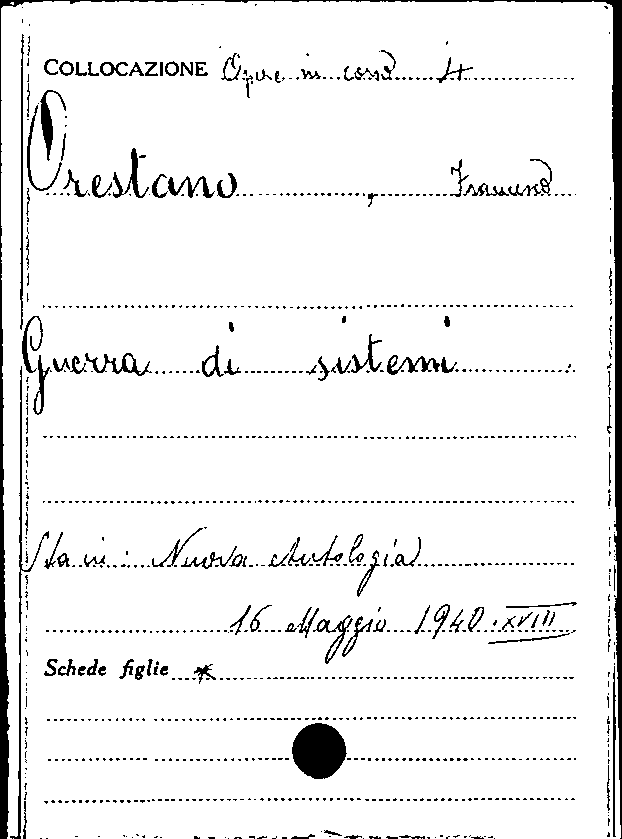 COLLOCAZIONE Opere in corso 4
Orestano , Francesco
Guerra di sistemi .
Sta in: Nuova Antologia
16 Maggio 1940.XVIII
Schede figlie *